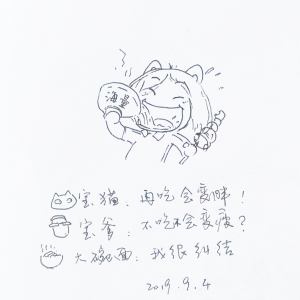 海量
宝猫：再吃会变胖！
宝爹：不吃不会变瘦？
大碗面：我很纠结
2019.9.4